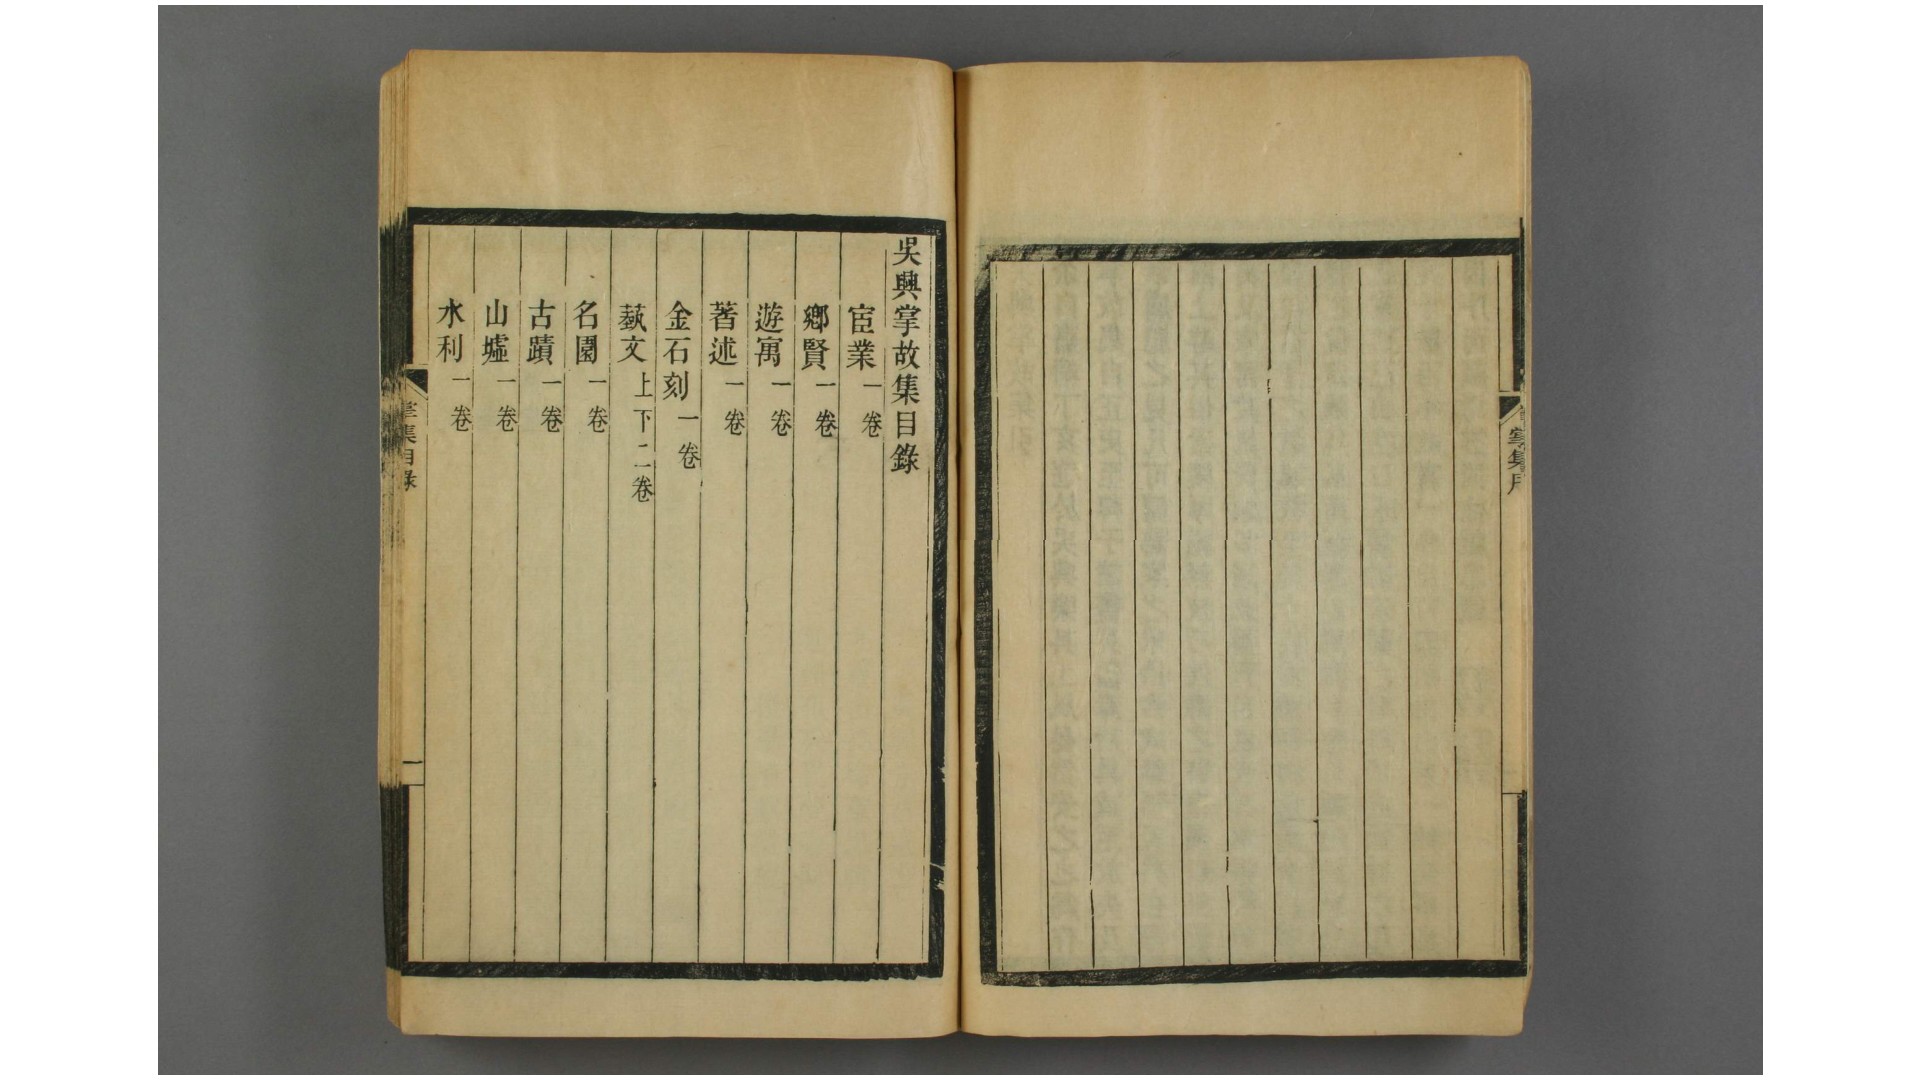 吳興掌故集目錄
宦業一卷
鄉賢一卷
遊寓一卷
著述一卷
金石刻一卷
蓺文上下二卷
名園一卷
古蹟一卷
山墟一卷
水利一卷
掌集目錄
一
掌集序